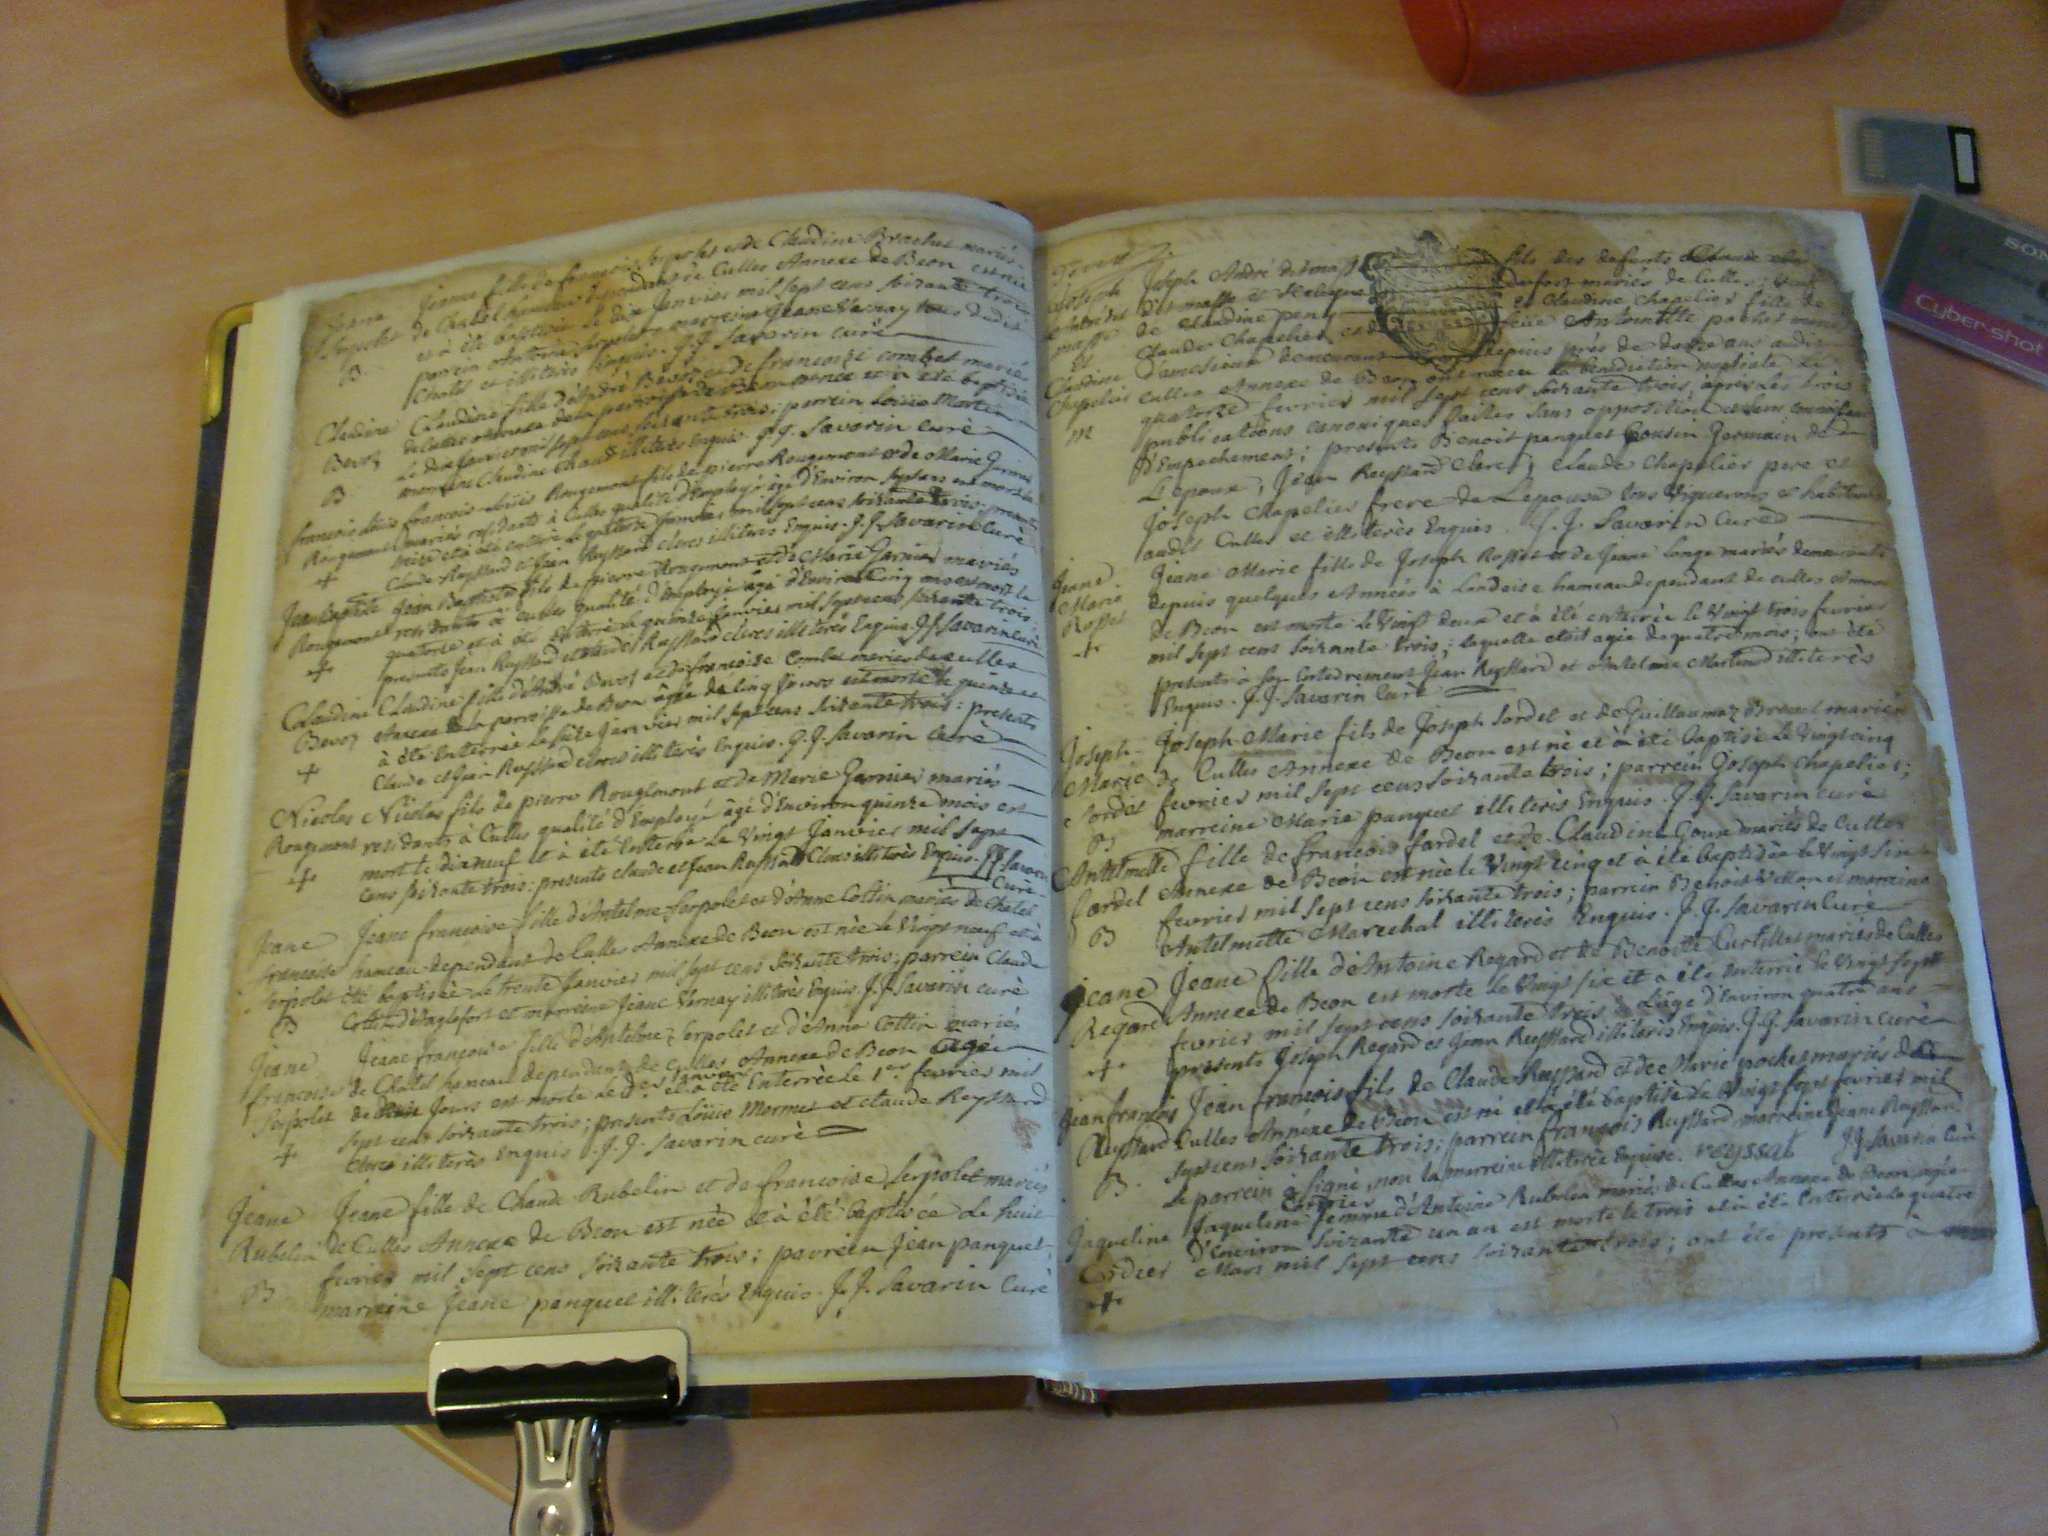 Jeane fille de françois Serpolet et de Claudine Brachet mariés
Serpolet de Chatel hameau dependant de Culles Annexe de Beon est née
et à été baptisée le dix Janvier mil sept cens soixante trois
B parrein Antoine Serpolet marreine Jeane Vernay tous dudit
Chatel et illiterès Enquis. J. J. Savarin curè
Claudine Claudine fille d'André Bevoz et de françoise combet mariés
Bevoz de Culles Annexe de la parroisse de Beon et à été baptisée
Le dix Janvier mil sept cens soixante trois; parrein Loüis Martin
B marreine Claudine Chaud illiterès Enquis. J. J. Savarin curè
françois Loüis françois Loüis Rougemont fils de pierre Rougemont et de Marie Garnier
Rougemont mariés residants à Culles qualité d'Employé agé d'Environ sept ans est mort le
treize et à été enterré le quatorze Janvier mil sept cens soixante trois; presents
+ Claude Reyssard et Jean Reyssard clercs illiterès Enquis. J. J. Savarin Curè
Jean Baptiste Jean Baptiste fils de pierre Rougemont et de Marie Garnier mariés
Rougemont residants à Culles qualité d'Employé agé d'Environ Cinq ans est mort le
quatorze et à été enterré le quinze Janvier mil sept cens soixante trois
+ presents Jean Reyssard et claude Reyssard clercs illiterès Enquis J. J. Savarin curè
Claudine Claudine fille d'André Bevoz et de françoise Combet mariés de Culles
Bevoz Annexe de la parroisse de Beon âgée de Cinq Jours est morte le quinze et
à été Enterrée le seize Janvier mil sept cens soixante trois: presents
+ Claude et Jean Reyssard clercs illiterès Enquis. J. J. Savarin curè
Nicolas Nicolas fils de pierre Rougemont et de Marie Garnier mariés
Rougemont residants à Culles qualité d'Employé âgé d'Environ quinze mois est
mort le dixneuf et à été Enterré Le Vingt Janvier mil sept
+ cens soixante trois: presents claude et Jean Reyssard Clercs illiterès Enquis. J J Savarin
Curè
Jeane Jeane françoise fille d'Antelme Serpolet et d'Anne Cottin mariés de Chatel
françoise hameau dependant de Culles Annexe de Beon est née le Vingt neuf et à
Serpolet été baptisée Le trente Janvier mil sept cens soixante trois; parrein Claude
B Cottin d'Anglefort et marreine Jeane Vernay illiterès Enquis. J. J. Savarin curè
Jeane Jeane françoise fille d'Antelme Serpolet et d'Anne Cottin mariés
françoise de Chatel hameau dependant de Culles Annexe de Beon agée
Serpolet de deux Jours est morte le d.er Janvier et à été Enterrée le 1.er fevrier mil
sept cens soixante trois; presents Loüis Mermet et claude Reyssard
+ clercs illiterès Enquis. J. J. Savarin curè
Jeane Jeane fille de Claude Rubelin et de françoise Serpolet mariés
Rubelin de Culles Annexe de Beon est née et à été baptisée Le huit
fevrier mil sept cens soixante trois; parrein Jean panquet
B marreine Jeane panquet illiterès Enquis. J. J. Savarin Curè
Joseph Joseph André
fils des defunts Claude
mariés de Culles
de Claudine
et Claudine Chapelier fille de
Claude Chapelier et de feüe Antoinette pochet
Claudine demeurant depuis près de douze ans audit
Chapelier Culles Annexe de Beon ont reçu la benediction nuptiale Le
M quatorze fevrier mil sept cens soixante trois, après Les trois
publications canoniques faites sans opposition et sans connoissance
d'Empechement; presents Benoit panquet Cousin Germain de
L'epoux, Jean Reyssard Clerc; Claude Chapelier pere et
Joseph Chapelier frere de L'epouse tous Vignerons et habitants
audit Culles et illiterès Enquis. J. J. Savarin Curè
Jeane Jeane Marie fille de Joseph Rosset et de Jeane Longe mariés demeurants
Marie depuis quelques Années à Landeise hameau dependant de culles Annexe
Rosset de Beon est morte Le Vingt deux et à été enterrée le Vingt trois fevrier
+ mil sept cens soixante trois; laquelle etoit agée de quatre mois; ont été
presents à son Enterrement Jean Reyssard et Antelme Martinod illiterès
Enquis. J. J. Savarin Curè
Joseph Joseph Marie fils de Joseph Sordet et de Guillaumaz Brunet mariés
Marie de Culles Annexe de Beon est né et à été baptisé Le Vingt cinq
Sordet fevrier mil sept cens soixante trois; parrein Joseph Chapelier;
B marreine Marie panquet illiterès Enquis. J. J. Savarin curè
Antelmette fille de françois fardel et de Claudine Goux mariés de Culles
fardel Annexe de Beon est née le Vingt cinq et à été baptisée le Vingt six
fevrier mil sept cens soixante trois; parrein Benoit Veillon et marreine
B Antelmette Marechal illiterès Enquis. J. J. Savarin Curè
Jeane Jeane fille d'Antoine Regard et de Benoite Curtillet mariés de Culles
Regard Annexe de Beon est morte Le Vingt six et à été enterrée le Vingt sept
fevrier mil sept cens soixante trois agée d'Environ quatre ans
+ presents Joseph Regard et Jean Reyssard illiterès Enquis. J. J. Savarin curè
Jean françois Jean françois fils de Claude Reyssard et de Marie pochet mariés de
Reyssard Culles Annexe de Beon est né et à été baptisé Le Vingt sept fevrier mil
sept cens soixante trois; parrein françois Reyssard marreine Jeane Reyssard
B. Le parrein à signé, non la marreine illiterée Enquise. reyssat J J Savarin Curè
Jaqueline Jaqueline Cordier femme d'Antoine Rubelin mariés de Culles Annexe de Beon agée
Cordier d'Environ soixante un an est morte le trois et à été Enterrée le quatre
+ Mars mil sept cens soixante trois; ont été presents à
SONY
Cyber-shot